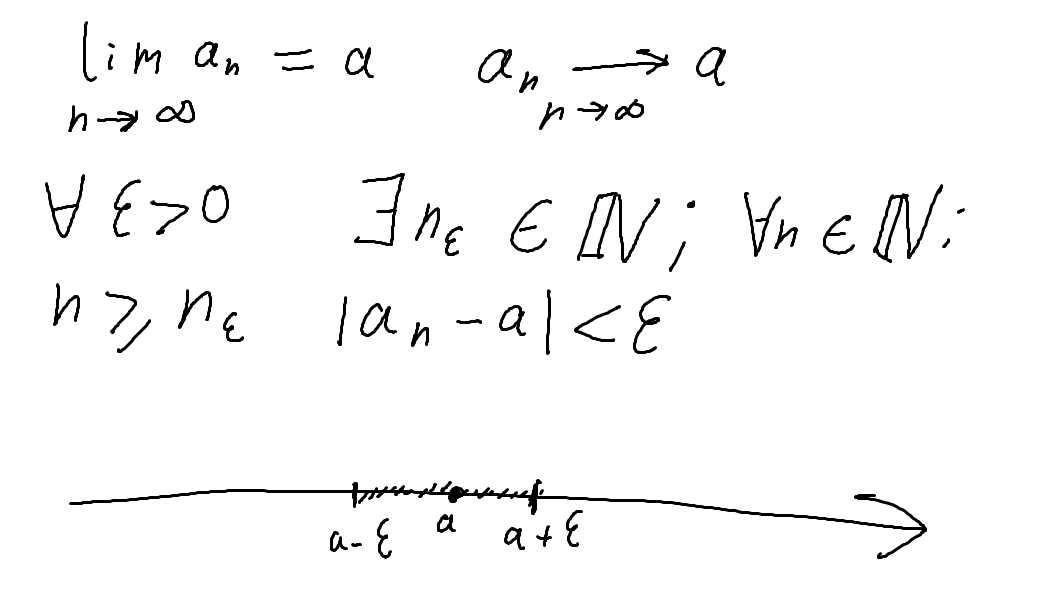 lim aₙ = a    aₙ ⟶ a
n→∞    n→∞
∀ ε>0    ∃ n_ε ∈ ℕ; ∀n ∈ ℕ:
n ⩾ n_ε    |aₙ - a| < ε
a-ε  a  a+ε